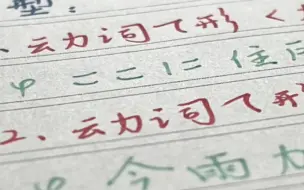 型:
、动词て形<
ここに住
2、动词て形
今雨